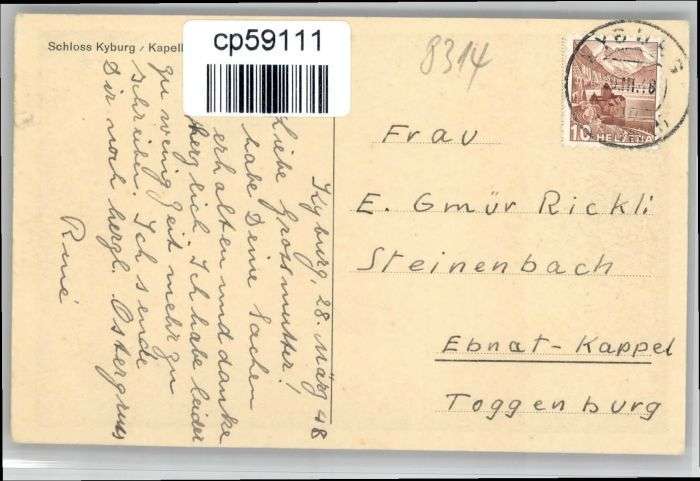 Schloss Kyburg / Kapell
cp59111
8314
10
HELVETIA
Kyburg, 28. März 48
Liebe Grossmutter!
habe Deine Sachen
erhalten und danke
herzlich. Ich habe leider
zu wenig Zeit mehr zu
schreiben. Ich sende
Dir noch herzl. Ostergruss
René
Frau
E. Gmür Rickli
Steinenbach
Ebnat-Kappel
Toggenburg